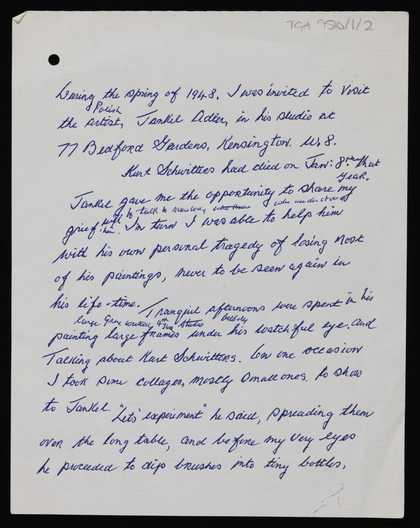 TGA 950/1/2
During the spring of 1948. I was invited to visit
Polish
the artist, Jankel Adler, in his studio at
77 Bedford Gardens, Kensington. W.8.
Kurt Schwitters had died on Jan: 8th that
year.
Jankel gave me the opportunity to share my
with to talk to someone who understood
grief him. In turn I was able to help him
with his own personal tragedy of losing most
of his paintings, never to be seen again in
his life-time. Tranquil afternoons were spent in his
large
painting large frames under his watchful eye. and
Talking about Kurt Schwitters. On one occasion
I took some collages, mostly small ones. to show
to Jankel. "Let's experiment" he said, spreading them
over the long table, and before my very eyes
he proceeded to dip brushes into tiny bottles,